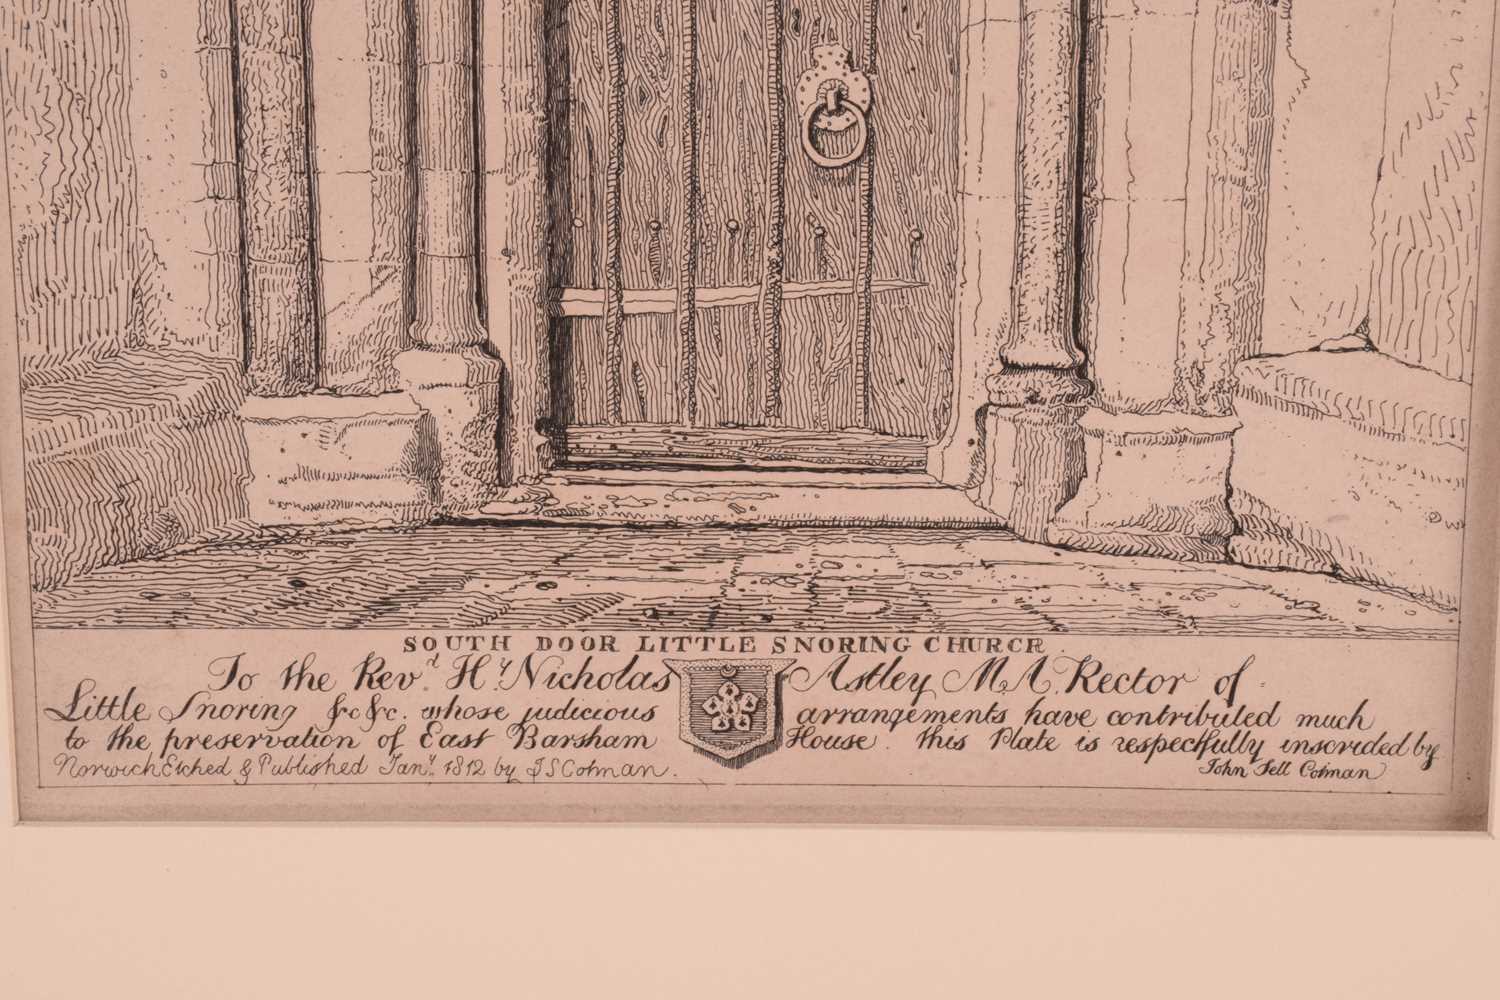 SOUTH DOOR LITTLE SNORING CHURCH.
To the Revd. Hy. Nicholas Astley M.A. Rector of
Little Snoring &c &c. whose judicious arrangements have contributed much
to the preservation of East Barsham House. this Plate is respectfully inscrided by
Norwich Etched & Published Jany. 1812 by J S Cotman.
John Sell Cotman